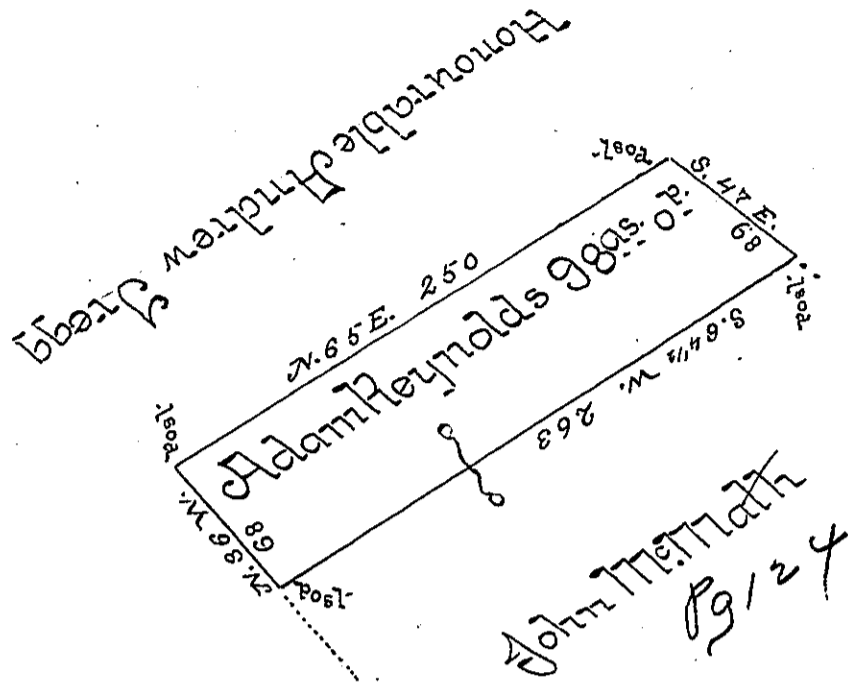 Honourable Andrew Gregg
Post
S. 44 E.
68
Post
N. 65 E. 250
Adam Reynolds 98as. 0 p.
S. 64 1/2 W. 263
Post
N. 36 W.
68
Post
John McMath
Pg 124